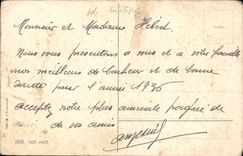 Monsieur et Madame Hébert.
Nous vous présentons a vous et a votre famille
nos meilleurs de bonheur et de bonne
santé pour l'année 1936
acceptez notre plus amicale poignée de
main de vos amis